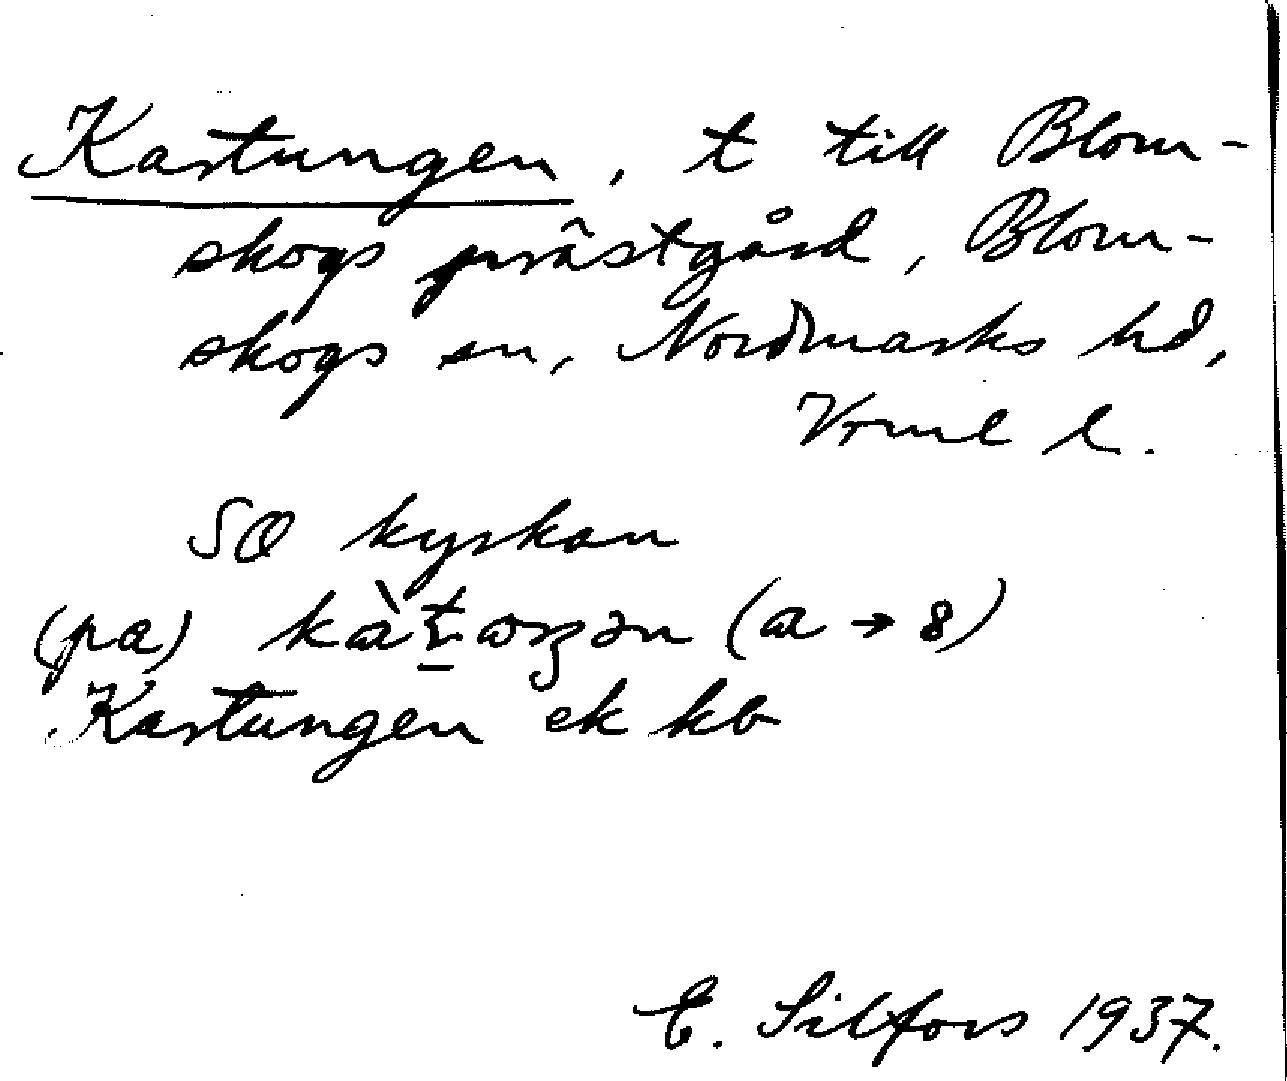 Kastungen, t till Blom-
skogs prästgård, Blom-
skogs sn, Nordmarks hd,
Vrml l.
SO kyrkan
(pa)
Kastungen ek kb
E. Silfors 1937.